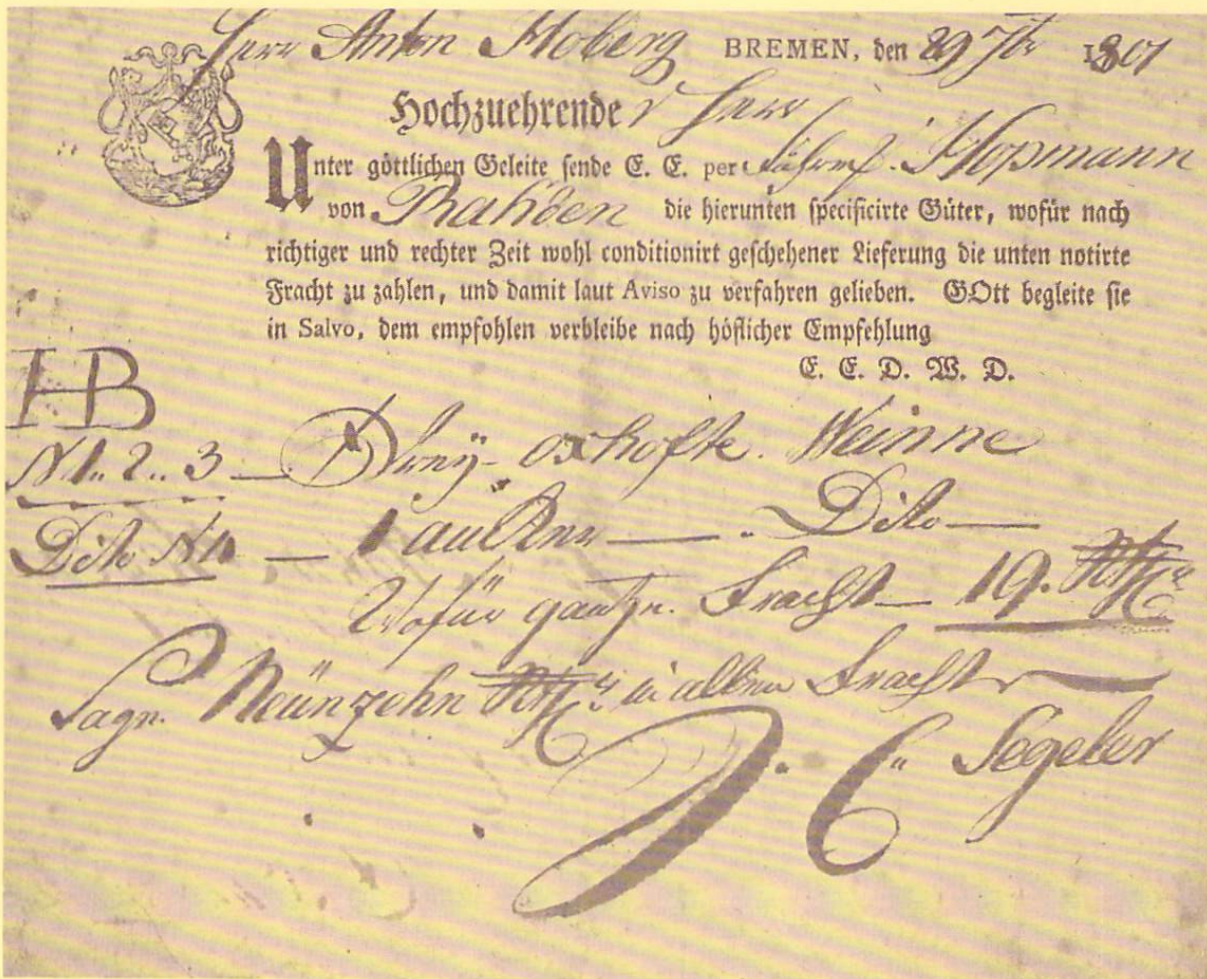 Herr Anton Hoberg BREMEN, den 29 7br 1801
Hochzuehrende r Herr
Unter göttlichen Geleite sende E. E. per Fuhrm. Hopmann
von Rahden die hierunten specificirte Güter, wofür nach
richtiger und rechter Zeit wohl conditionirt geschehener Lieferung die unten notirte
Fracht zu zahlen, und damit laut Aviso zu verfahren gelieben. GOtt begleite sie
in Salvo, dem empfohlen verbleibe nach höflicher Empfehlung
E. E. D. W. D.
HB
N 1.. 2.. 3 — Dreÿ oxhofte. Weinne
Dito N — 1 anker — Dito —
Wofür gantze. Fracht — 19. Rth
Sage. Neünzehn Rth in allem Fracht
J. C. Segeler